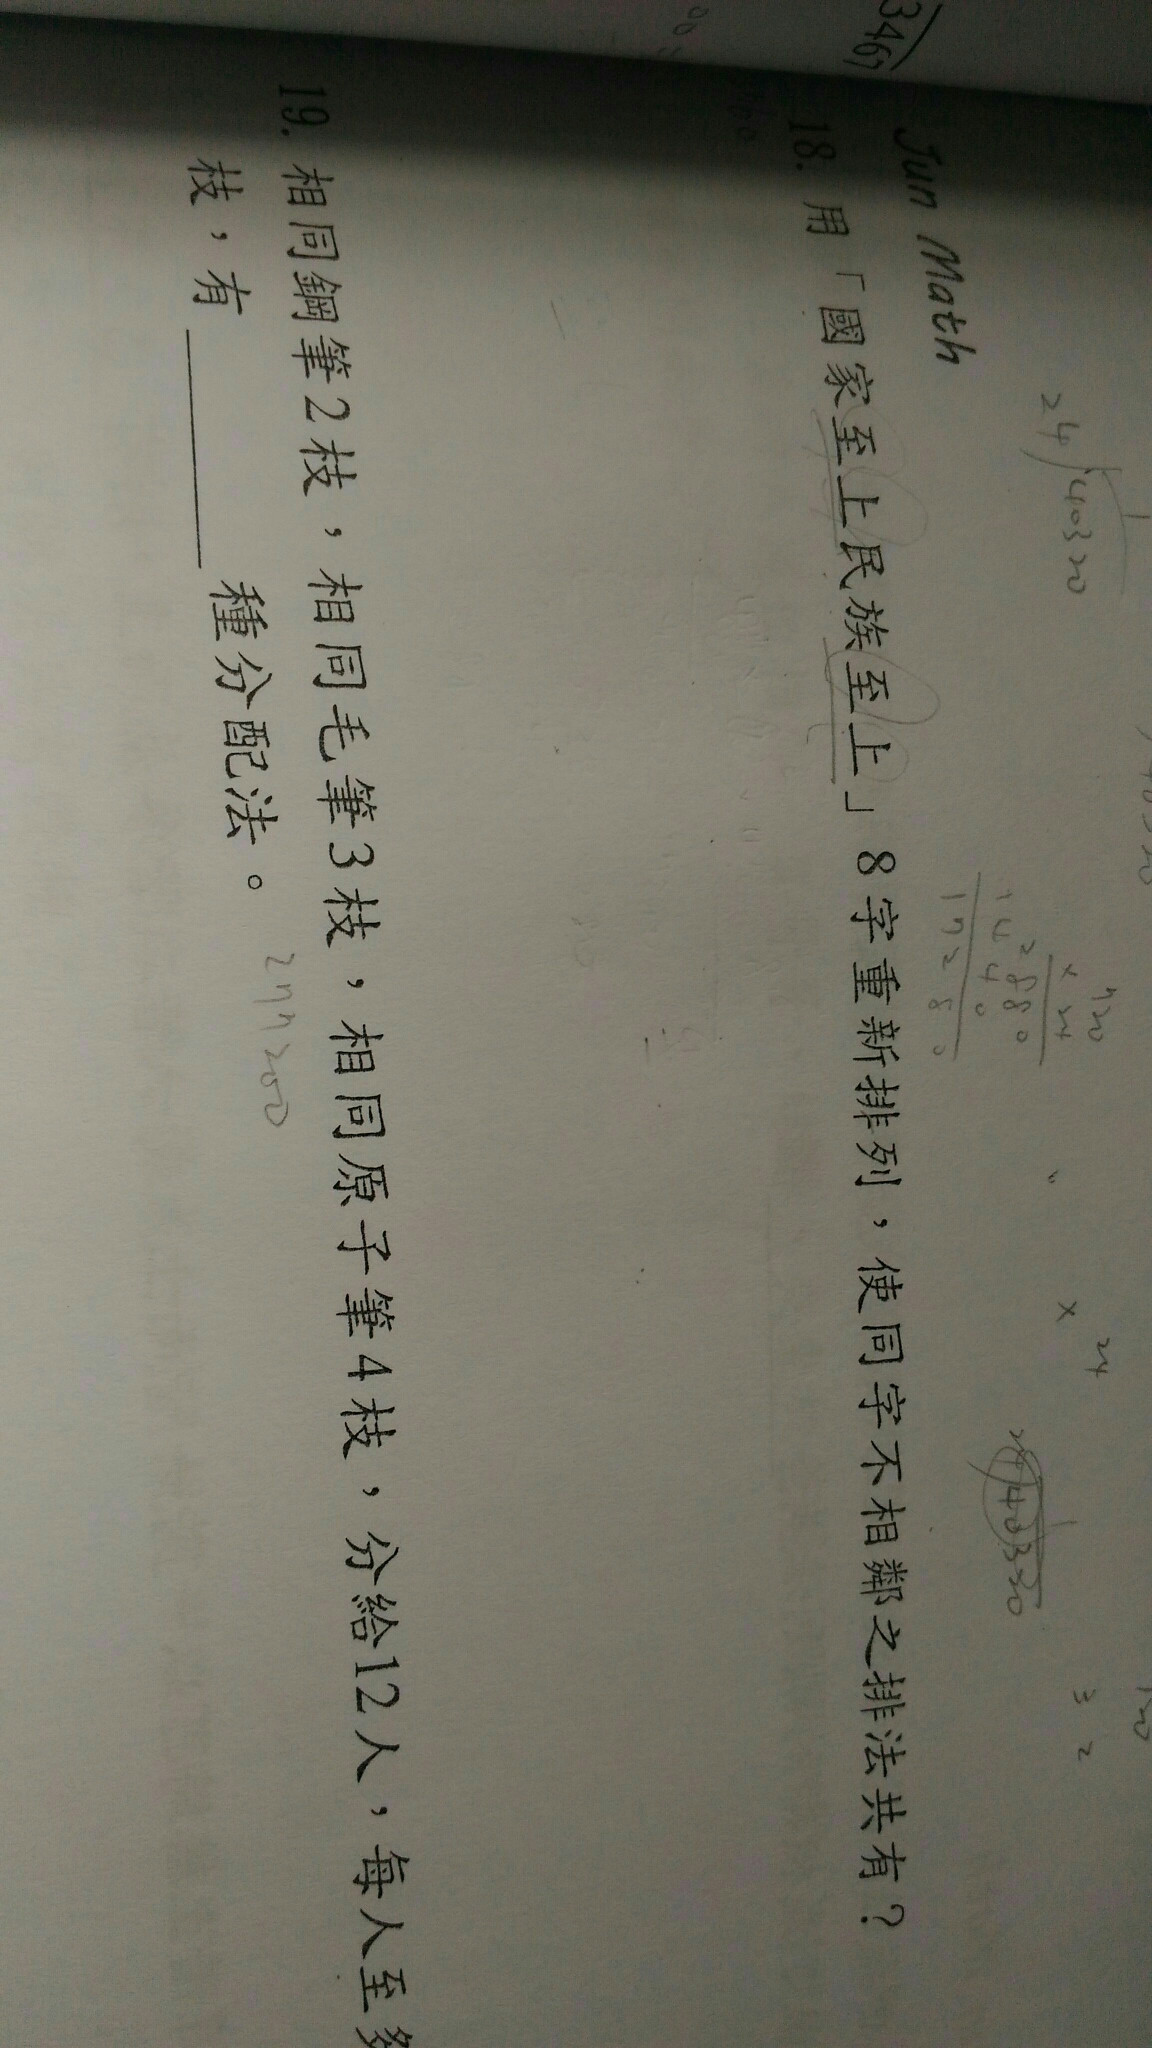 346
Jun Math
24 40320
720
× 24
2880
1440
17280
× 24
24 40320
3 2
120
18. 用「國家至上民族至上」8字重新排列，使同字不相鄰之排法共有？
19. 相同鋼筆2枝，相同毛筆3枝，相同原子筆4枝，分給12人，每人至多
枝，有______種分配法。
277200